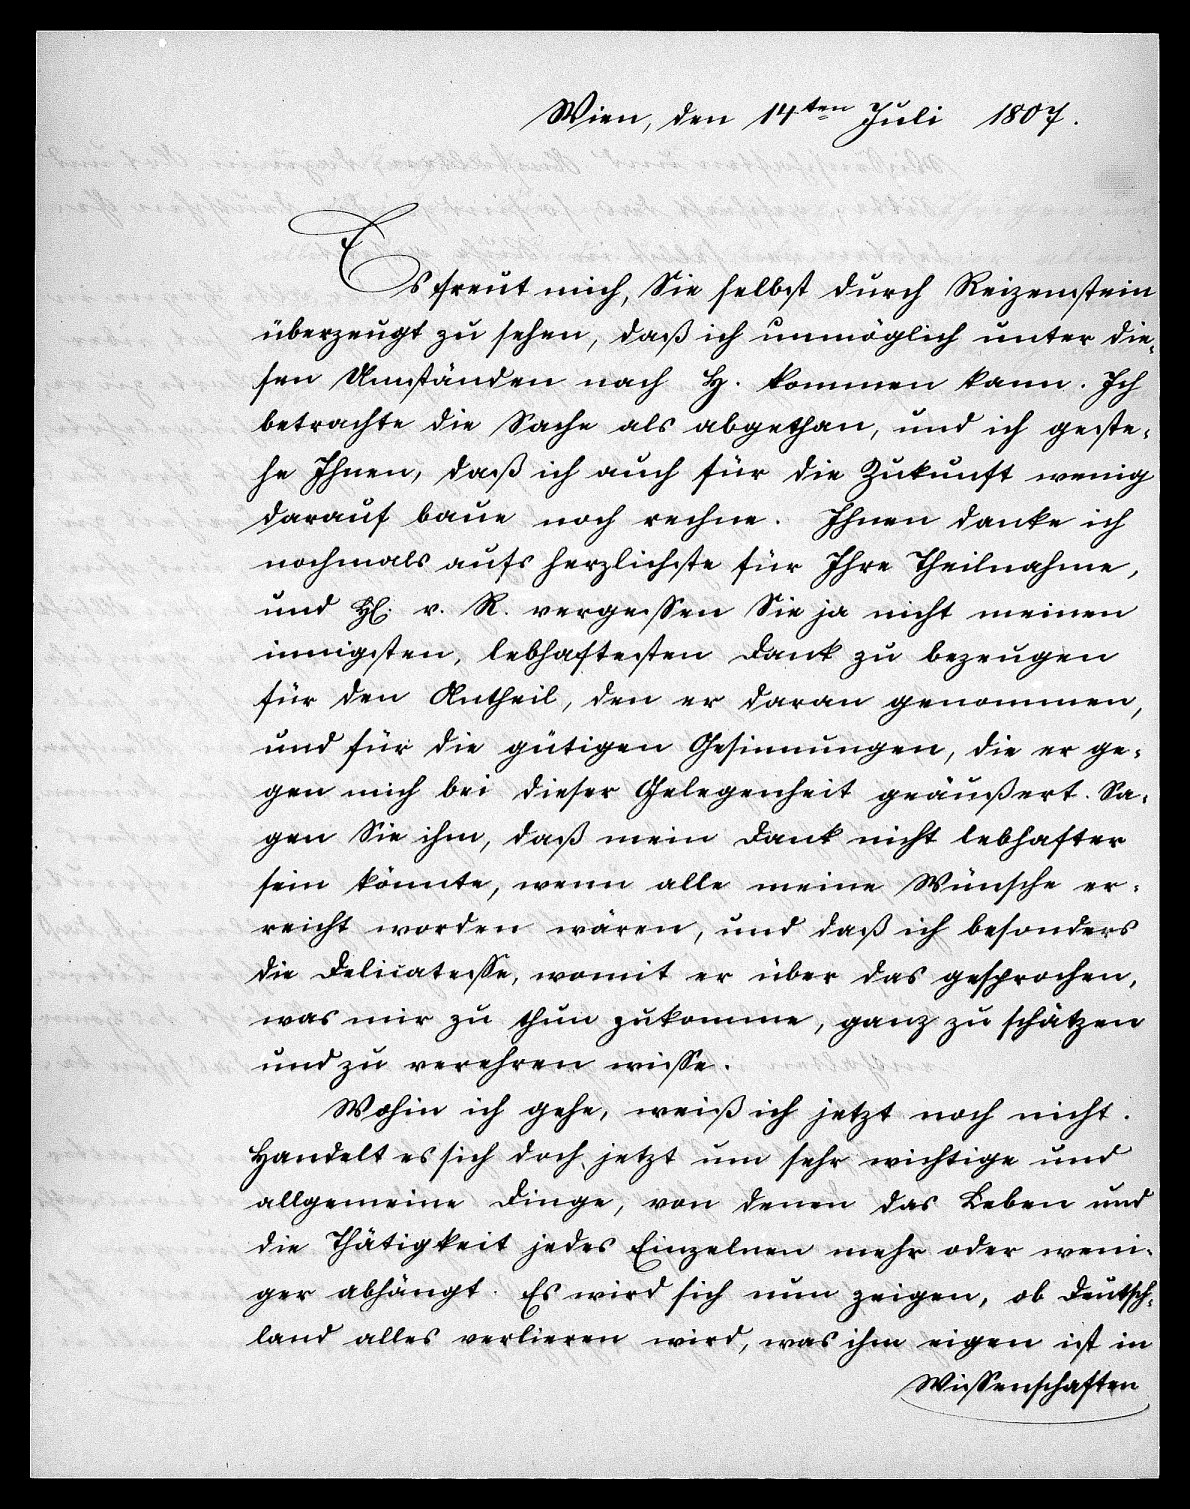 Wien, den 14ten Juli 1807.
Es freut mich, Sie selbst durch Reizenstein
überzeugt zu sehen, daß ich unmöglich unter die-
sen Umständen nach H. kommen kann. Ich
betrachte die Sache als abgethan, und ich geste-
he Ihnen, daß ich auch für die Zukunft wenig
darauf baue noch rechne. Ihnen danke ich
nochmals aufs herzlichste für Ihre Theilnahme,
und H. v. R. vergessen Sie ja nicht meinen
innigsten, lebhaftesten Dank zu bezeugen
für den Antheil, den er daran genommen,
und für die gütigen Gesinnungen, die er ge-
gen mich bei dieser Gelegenheit geäußert. Sa-
gen Sie ihm, daß mein Dank nicht lebhafter
sein könnte, wenn alle meine Wünsche er-
reicht worden wären, und daß ich besonders
die Delicatesse, womit er über das gesprochen,
was mir zu thun zukomme, ganz zu schätzen
und zu verehren wisse.
Wohin ich gehe, weiß ich jetzt noch nicht.
Handelt es sich doch jetzt um sehr wichtige und
allgemeine Dinge, von denen das Leben und
die Thätigkeit jedes Einzelnen mehr oder weni-
ger abhängt. Es wird sich nun zeigen, ob Deutsch-
land alles verlieren wird, was ihm eigen ist in
Wissenschaften